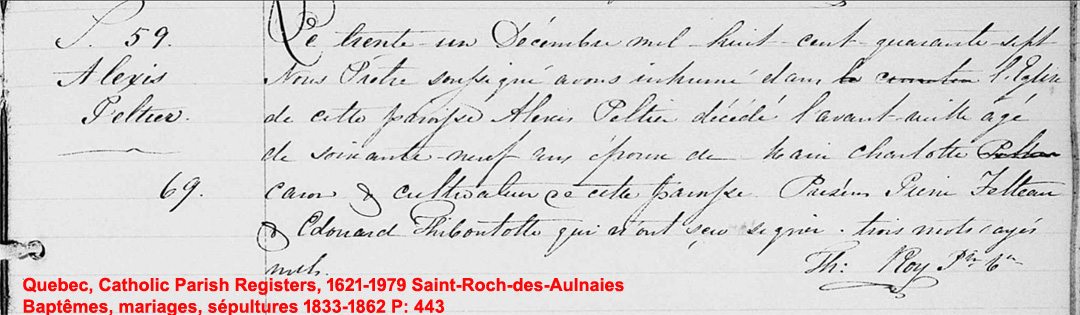 S. 59.
Alexis
Peltier.
69.
Le trente-un Décembre mil-huit-cent-quarante-sept
Nous Prêtre soussigné avons inhumé dans le l'Eglise
de cette paroisse Alexis Peltier décédé l'avant-veille âgé
de soixante-neuf ans époux de Marie Charlotte
caron & cultivateur de cette paroisse. Présens Pierre
& Edouard Thiboutotte qui n'ont sçu signer. trois mots rayés
nuls.
Th: Roy Ptre
Quebec, Catholic Parish Registers, 1621-1979 Saint-Roch-des-Aulnaies
Baptêmes, mariages, sépultures 1833-1862 P: 443